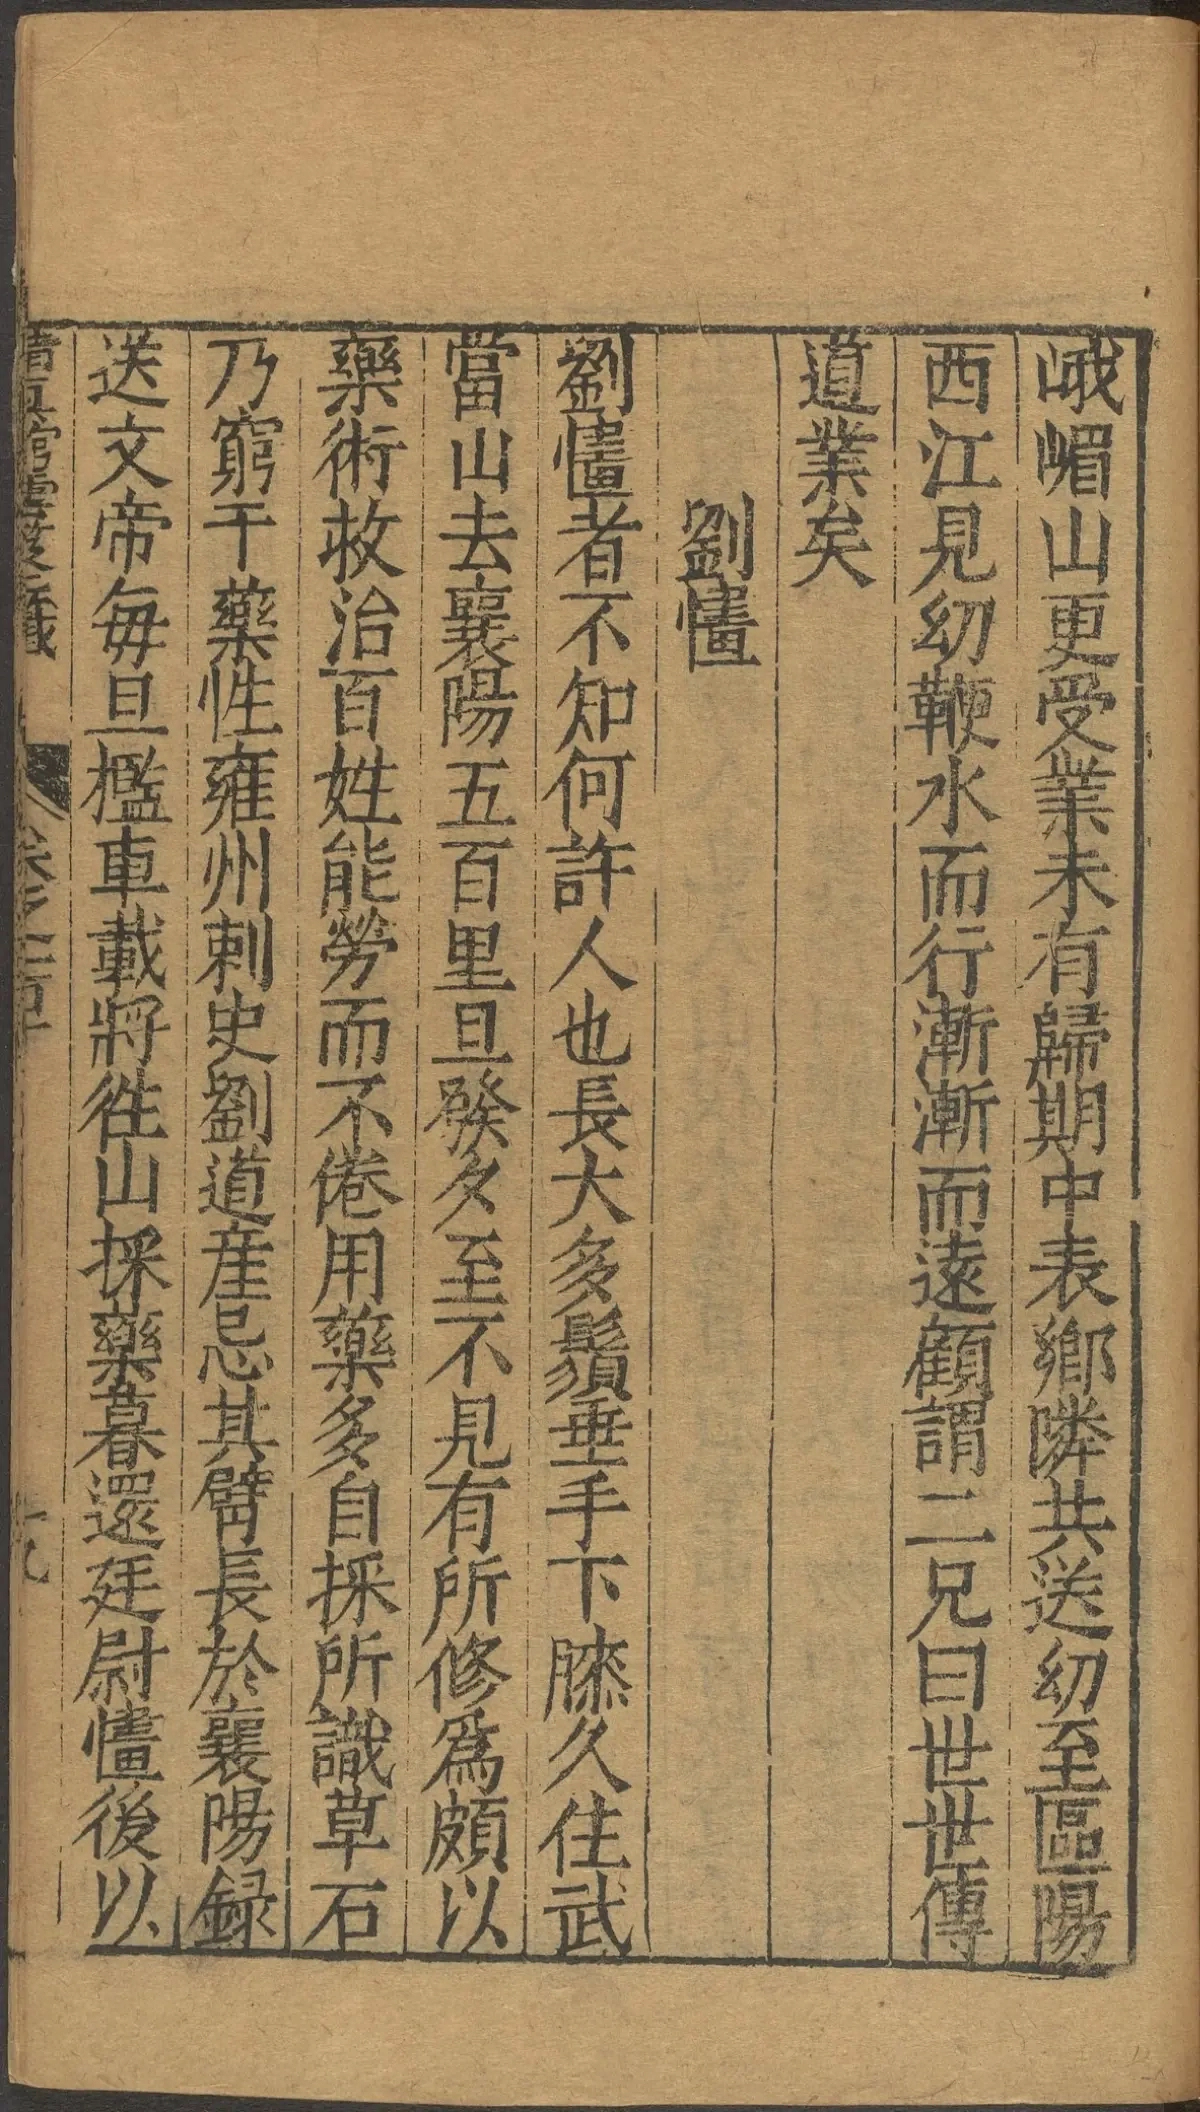 峨嵋山更受業未有歸期中表鄉隣共送幼至區陽
西江見幼鞭水而行漸漸而遠顧謂二兄曰世世傳
道業矣
劉㦎
劉㦎者不知何許人也長大多鬚垂手下膝久住武
當山去襄陽五百里旦發夕至不見有所修爲頗以
藥術救治百姓能勞而不倦用藥多自採所識草石
乃窮干藥性雍州刺史劉道産忌其臂長於襄陽録
送文帝每旦檻車載將徃山採藥暮還廷尉㦎後以